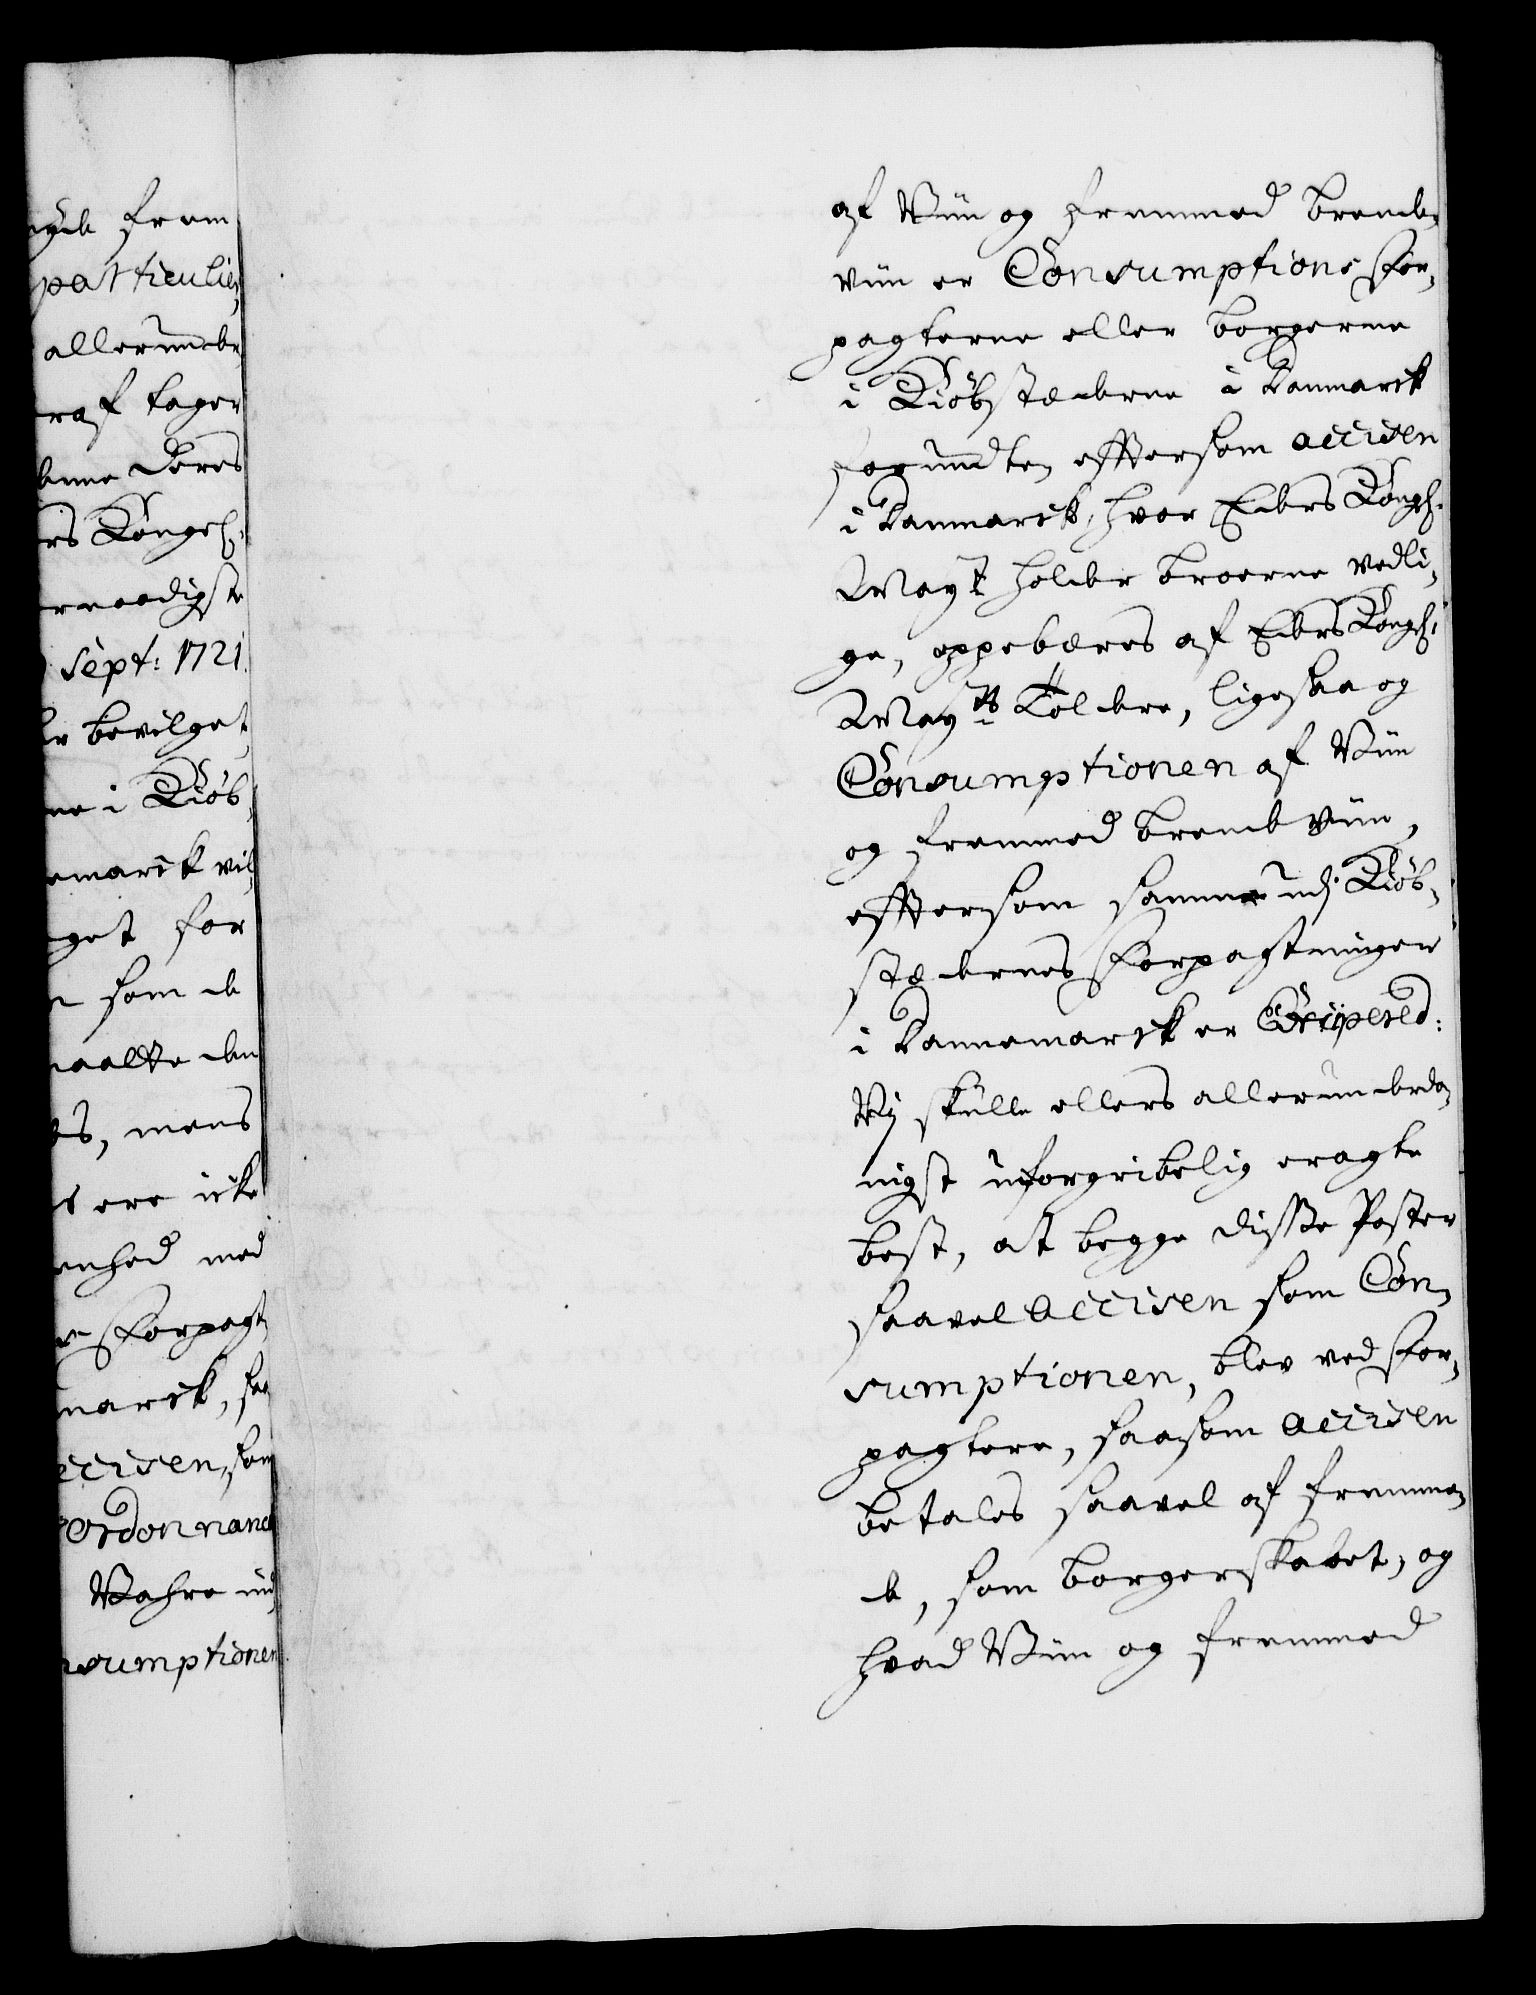 frem
particulier
allerunde
raf tager
denne Deres
rs Kongel:
ernaadigste
sept: 1721.
er bevilget
ne i Kiöb,
emarck vil
get for
som de
maatte den
es, mens
ere icke
enhed med
Forpagt,
marck, saa
accisen, som
Ordonnance
Wahre ind
nsumptionen
af Viin og fremmed brende,
viin er Consumptions For,
pagterne eller borgerne
i Kiöbstæderne i Danmarck
forundt, efftersom accisen
i Danmarck, hvor Eders Kongel:
Mayt holder broerne vedli,
ge, oppebæres af Eders Kongel:
Mayts Toldere, ligesaa og
Consumptionen af Viin
og fremmed brendeviin,
efftersom samme udj Kiöb,
stædernes Forpagtninger
i Dannemarck er
Vj skulle ellers allerunderda,
nigst uforgribelig eragte
best, at begge disse Poster
saavel accisen som Con,
sumptionen, blev ved For,
pagtere, saasom accisen
betales saavel af fremme,
de, som borgerskabet, og
hvad Viin og fremmed